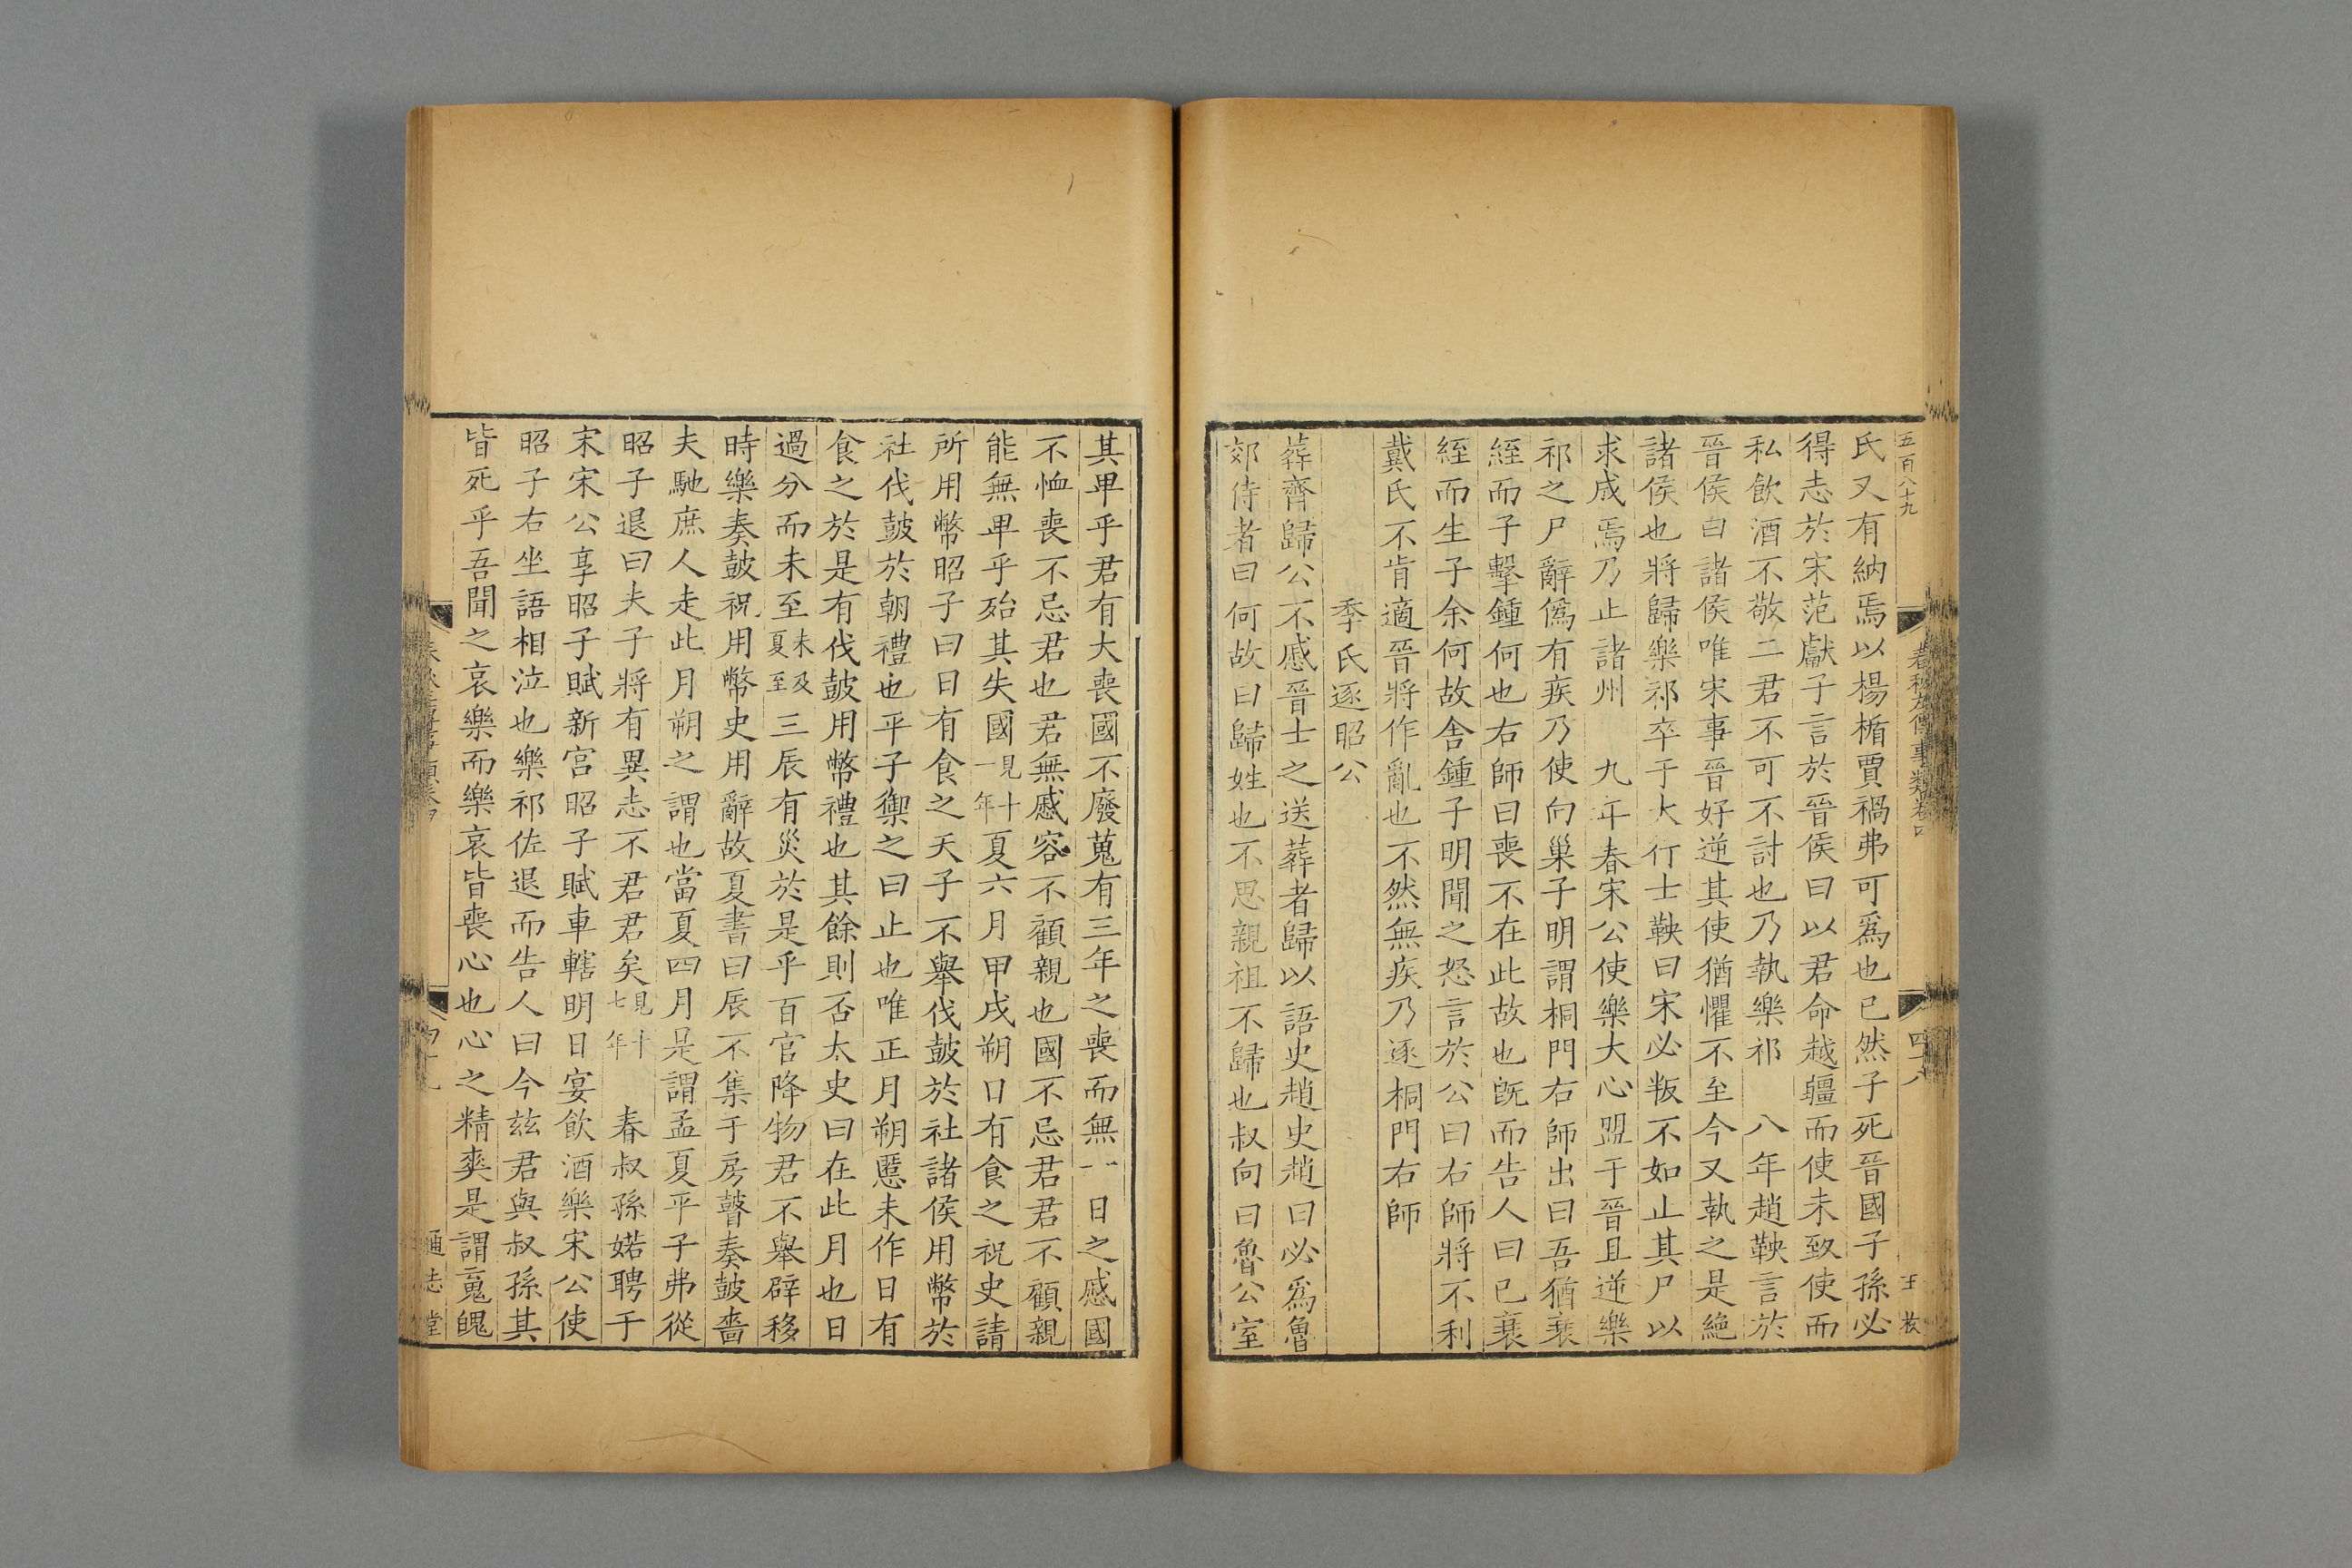 五百八十九
春秋左傳事類卷四
四十八
王枚
氏又有納焉以楊楯賈禍弗可爲也已然子死晉國子孫必
得志於宋范獻子言於晉侯曰以君命越疆而使未致使而
私飲酒不敬二君不可不討也乃執樂祁　八年趙鞅言於
晉侯曰諸侯唯宋事晉好逆其使猶懼不至今又執之是絕
諸侯也將歸樂祁卒于大行士鞅曰宋必叛不如止其尸以
求成焉乃止諸州　九年春宋公使樂大心盟于晉且逆樂
祁之尸辭僞有疾乃使向巢子明謂桐門右師出曰吾猶衰
絰而子擊鍾何也右師曰喪不在此故也旣而告人曰已衰
絰而生子余何故舍鍾子明聞之怒言於公曰右師將不利
戴氏不肯適晉將作亂也不然無疾乃逐桐門右師
季氏逐昭公
葬齊歸公不慼晉士之送葬者歸以語史趙史趙曰必爲魯
郊侍者曰何故曰歸姓也不思親祖不歸也叔向曰魯公室
其卑乎君有大喪國不廢蒐有三年之喪而無一日之慼國
不恤喪不忌君也君無慼容不顧親也國不忌君君不顧親
能無卑乎殆其失國見十一年夏六月甲戌朔日有食之祝史請
所用幣昭子曰日有食之天子不舉伐鼓於社諸侯用幣於
社伐鼓於朝禮也平子禦之曰止也唯正月朔慝未作日有
食之於是有伐鼓用幣禮也其餘則否太史曰在此月也日
過分而未至未及夏至三辰有災於是乎百官降物君不舉辟移
時樂奏鼓祝用幣史用辭故夏書曰辰不集于房瞽奏鼓嗇
夫馳庶人走此月朔之謂也當夏四月是謂孟夏平子弗從
昭子退曰夫子將有異志不君君矣見十七年　春叔孫婼聘于
宋宋公享昭子賦新宮昭子賦車轄明日宴飲酒樂宋公使
昭子右坐語相泣也樂祁佐退而告人曰今玆君與叔孫其
皆死乎吾聞之哀樂而樂哀皆喪心也心之精爽是謂䰟魄
通志堂